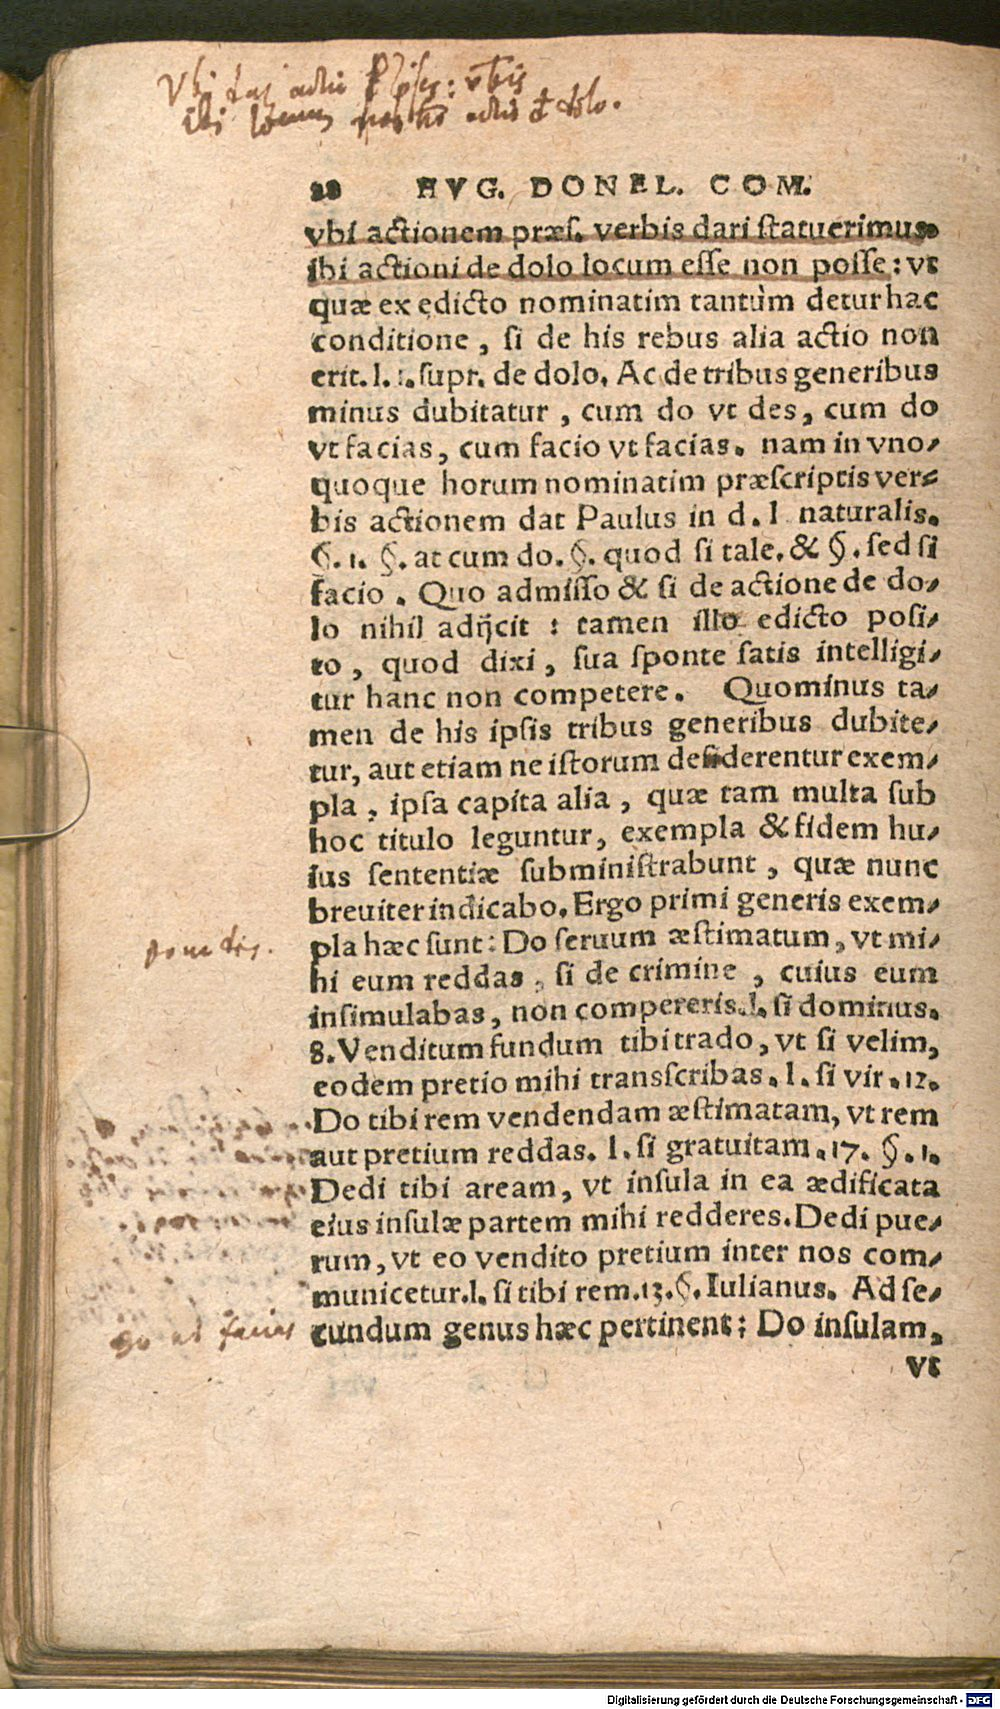 HVG. DONEL. COM.
vbi actionem præs. verbis dari statuerimus
ibi actioni de dolo locum esse non posse: vt
quæ ex edicto nominatim tantùm detur hac
conditione, si de his rebus alia actio non
erit. l. 1. supr. de dolo. Ac de tribus generibus
minus dubitatur, cum do vt des, cum do
vt facias, cum facio vt facias. nam in vno-
quoque horum nominatim præscriptis ver-
bis actionem dat Paulus in d. l. naturalis.
§. 1. §. at cum do. §. quod si tale. & §. sed si
facio. Quo admisso & si de actione de do-
lo nihil adijcit: tamen illo edicto posi-
to, quod dixi, sua sponte satis intelligi-
tur hanc non competere. Quominus ta-
men de his ipsis tribus generibus dubite-
tur, aut etiam ne istorum desiderentur exem-
pla, ipsa capita alia, quæ tam multa sub
hoc titulo leguntur, exempla & fidem hu-
ius sententiæ subministrabunt, quæ nunc
breuiter indicabo. Ergo primi generis exem-
pla hæc sunt: Do seruum æstimatum, vt mi-
hi eum reddas, si de crimine, cuius eum
insimulabas, non compereris. l. si dominus.
8. Venditum fundum tibi trado, vt si velim,
eodem pretio mihi transscribas. l. si vir. 12.
Do tibi rem vendendam æstimatam, vt rem
aut pretium reddas. l. si gratuitam. 17. §. 1.
Dedi tibi aream, vt insula in ea ædificata
eius insulæ partem mihi redderes. Dedi pue-
rum, vt eo vendito pretium inter nos com-
municetur. l. si tibi rem. 13. §. Iulianus. Ad se-
do ut facias
cundum genus hæc pertinent: Do insulam,
vt
Digitalisierung gefördert durch die Deutsche Forschungsgemeinschaft - DFG